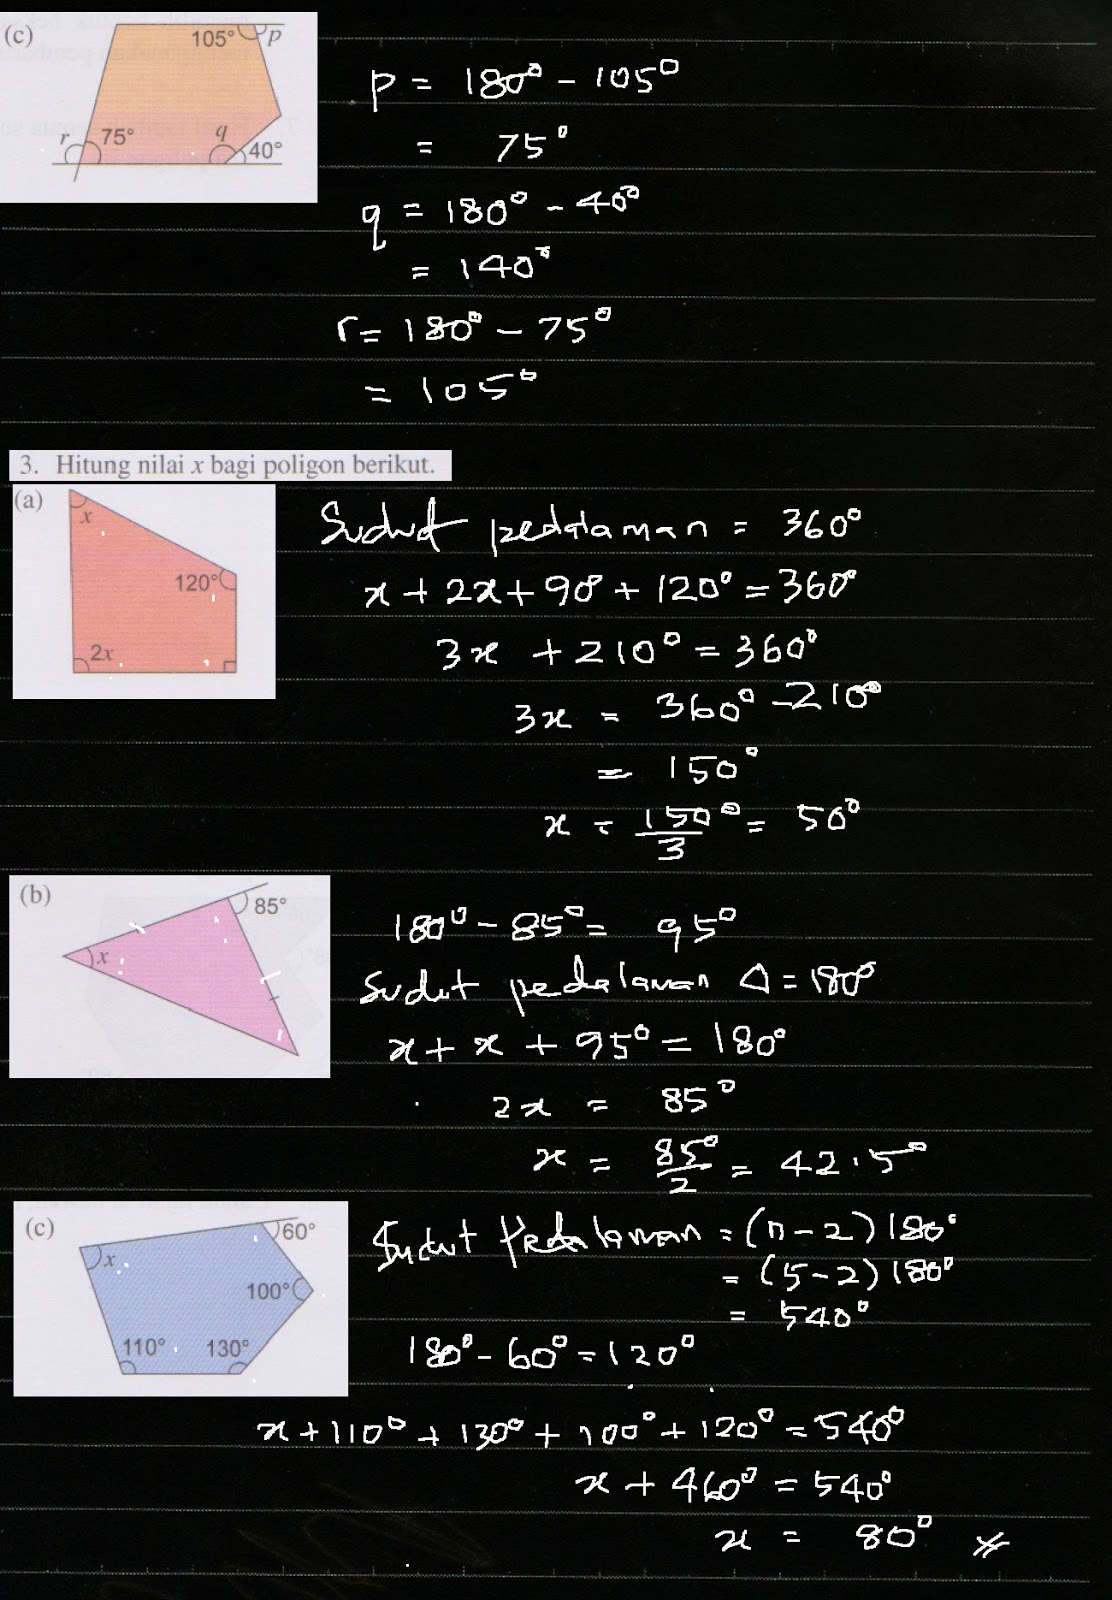 (c)
105° p
r 75° q 40°
p = 180° - 105°
= 75°
q = 180° - 40°
= 140°
r = 180° - 75°
= 105°
3. Hitung nilai x bagi poligon berikut.
(a)
x
120°
2x
Sudut pedalaman = 360°
x + 2x + 90 + 120° = 360°
3x + 210° = 360°
3x = 360° - 210°
= 150°
x = 150°/3 = 50°
(b)
85°
x
180° - 85° = 95°
Sudut pedalaman △ = 180°
x + x + 95° = 180°
2x = 85°
x = 85°/2 = 42.5°
(c)
60°
x
100°
110° 130°
Sudut Pedalaman = (n-2) 180°
= (5-2) 180°
= 540°
180° - 60° = 120°
x + 110° + 130° + 100° + 120° = 540°
x + 460° = 540°
x = 80°